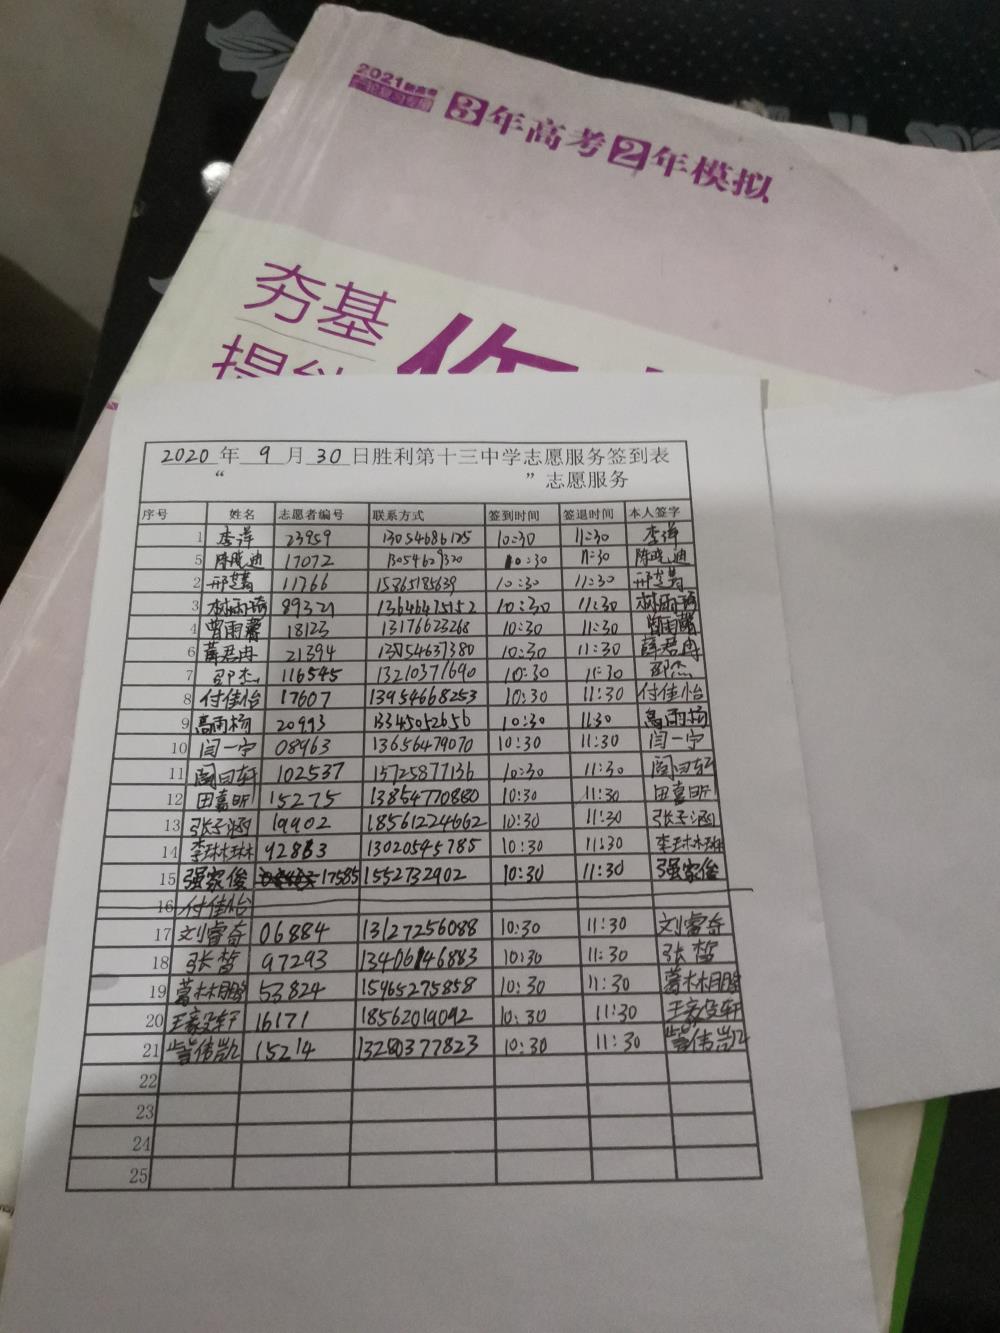 2021新高考
一轮复习专用
3年高考2年模拟
夯基
提能
2020年 9 月 30 日胜利第十三中学志愿服务签到表
“ ”志愿服务
序号 姓名 志愿者编号 联系方式 签到时间 签退时间 本人签字
1 李洋 23959 13054686125 10:30 11:30 李洋
5 陈晓迪 17072 13054629320 10:30 11:30 陈晓迪
2 邢慧 11766 15865185639 10:30 11:30
3 林雨琦 89321 13646475152 10:30 11:30 林雨琦
4 曾雨馨 18123 13176623268 10:30 11:30 曾雨馨
6 薛君冉 21394 13954637380 10:30 11:30 薛君冉
7 邵杰 116545 13210371690 10:30 11:30 邵杰
8 付佳怡 17607 13954668253 10:30 11:30 付佳怡
9 高雨杨 20993 13345052656 10:30 11:30 高雨杨
10 闫一宁 08963 13656479070 10:30 11:30 闫一宁
11 102537 15725877136 10:30 11:30
12 田嘉昕 15275 13854770880 10:30 11:30 田嘉昕
13 张子涵 19902 18561224662 10:30 11:30 张子涵
14 李琳琳 92883 13020545785 10:30 11:30 李琳琳
15 强家俊 17585 1552732902 10:30 11:30 强家俊
16 付佳怡
17 刘睿奇 06884 13127256088 10:30 11:30 刘睿奇
18 张皙 97293 13406146883 10:30 11:30 张皙
19 葛林鹏 53824 15965275858 10:30 11:30 葛林鹏
20 16171 18562019092 10:30 11:30
21 訾伟凯 15214 13280377823 10:30 11:30 訾伟凯
22
23
24
25